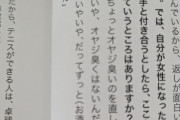 んでいるから、返しが面白い
では、自分が女性になった
手と付き合うとしたら、ここ
ていうところはありますか？
ちょっとオヤジ臭いのを直し
いや、オヤジ臭くはないんだ
いやいや、だってずっと（お酒
だから、テニスができる人は、卓球